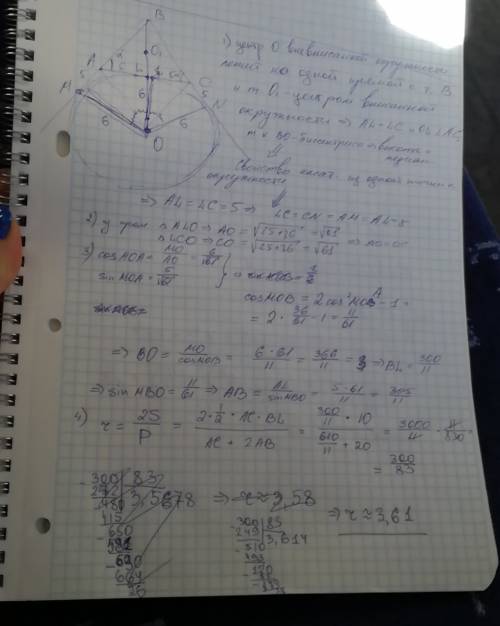 B
O₁
A
L
C
5
5
M
N
6
6
6
O
1) центр O вневписанной окружности
лежит на одной прямой с т. B
и т. O₁ - центром вписанной
окружности ⇒ AL = LC = OL ⊥ AC,
т к BO - биссектриса и высота
Свойство касат. из одной точки к
окружности
⇒ AL = LC = 5 ⇒ LC = CN = AM = AL = 5
2) ΔALO ⇒ AO = √25+36 = √61
ΔLCO ⇒ CO = √25+36 = √61 ⇒ AO = OC
3) cos AOA = MO/AO = 6/√61
sin MOA = 5/√61
cos MOB = 2 cos² MOA - 1 =
= 2 · 36/61 - 1 = 11/61
⇒ BO = MO/cos MOB = 6·61/11 = 366/11 = ⇒ BL = 300/11
⇒ sin MBO = 11/61 ⇒ AB = AL/sin MBO = 5·61/11 = 305/11
4) r = 2S/P = 2·½·AC·BL/AC + 2AB = 300/11 · 10/610/11 + 20 = 3000/11 · 11/830 =
= 300/83
300 83
249 3,614
510
⇒ r ≈ 3,58
⇒ r ≈ 3,61